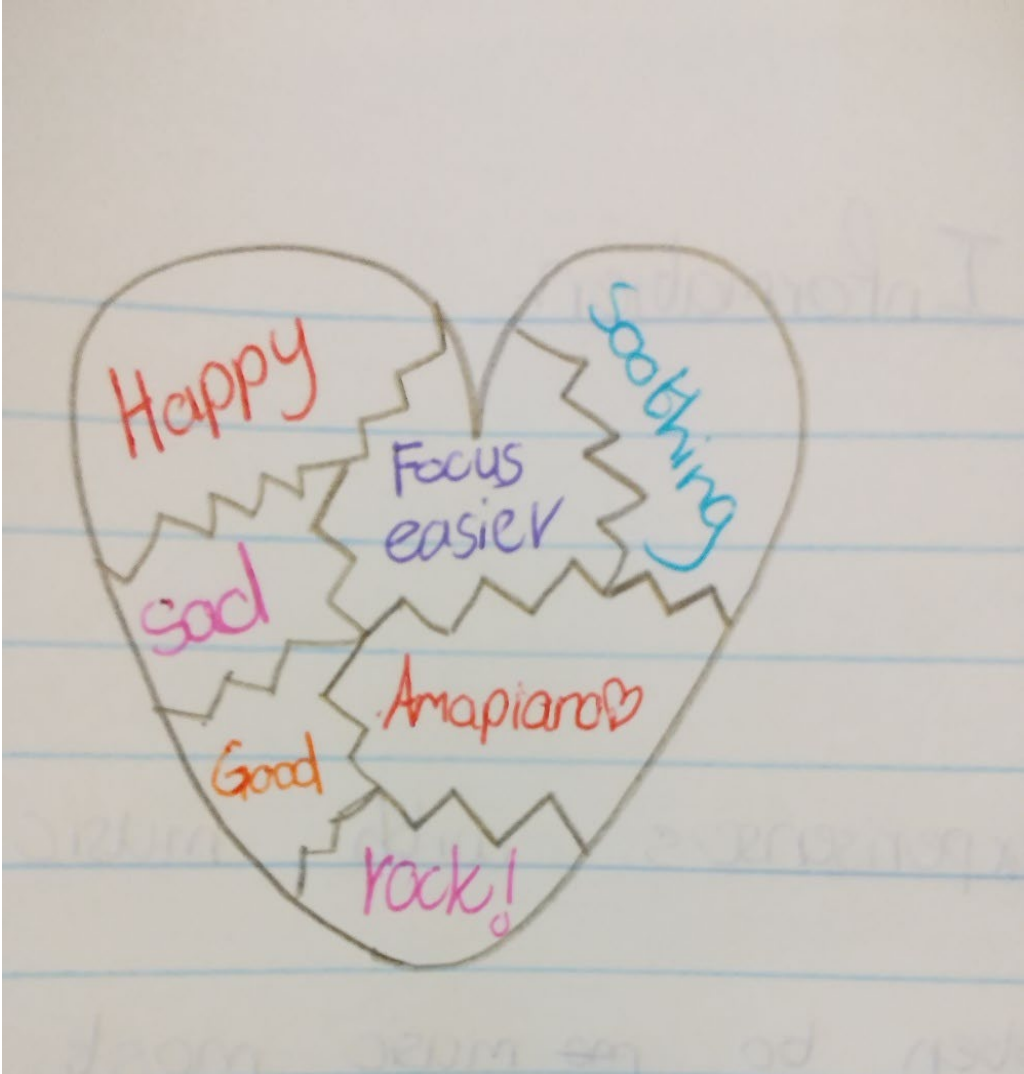 Happy
Soothing
Focus
easier
Sad
Amapiano♡
Good
rock!